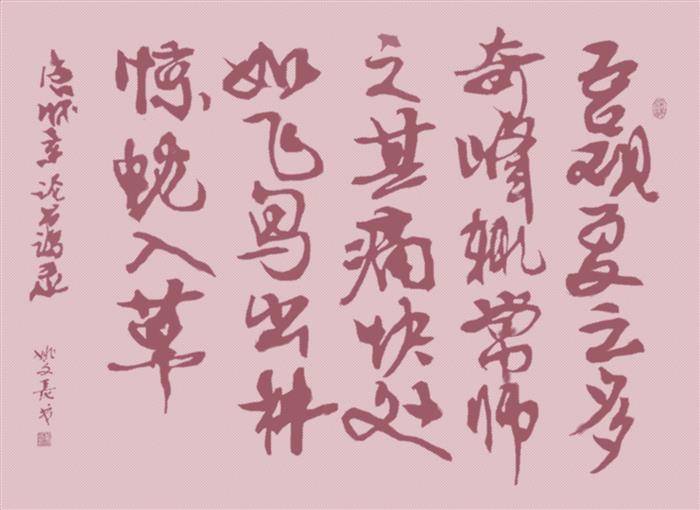 吾观夏之多
奇峰辄常师
之其痛快处
如飞鸟出林
惊蛇入草
唐怀素论书语录
姚文长书